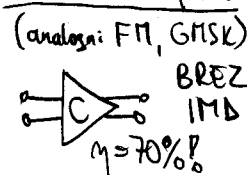 (analogni FM, GMSK)
BREZ
IMD
C
η=70%!